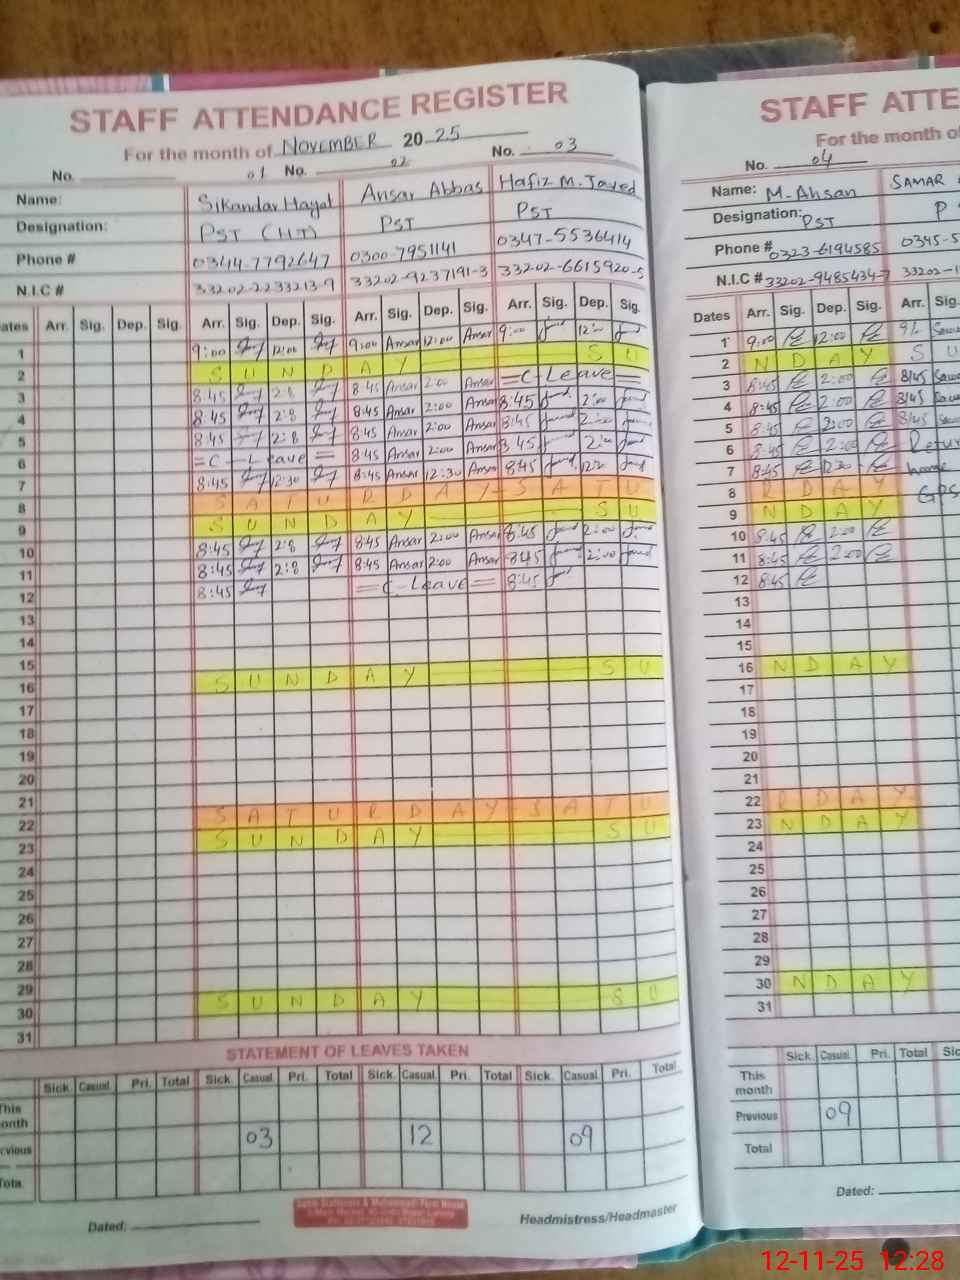 STAFF ATTENDANCE REGISTER
For the month of NOVEMBER 2025
No. 01 No. 02 No. 03
Name: Sikandar Hayat Ansar Abbas Hafiz M. Javed
Designation: PST (H.T) PST PST
Phone # 0344-7792647 0300-7951141 0347-5536414
N.I.C # 33202-2233213-9 33202-9237191-3 33202-6615920-5
Dates Arr. Sig. Dep. Sig. Arr. Sig. Dep. Sig. Arr. Sig. Dep. Sig. Arr. Sig. Dep. Sig.
1 9:00 12:00 9:00 Ansar 12:00 Ansar 9:00 12:00
2 S U N D A Y S U
3 8:45 2:8 8:45 Ansar 2:00 Ansar = C - Leave =
4 8:45 2:8 8:45 Ansar 2:00 Ansar 8:45 2:00
5 8:45 2:8 8:45 Ansar 2:00 Ansar 8:45 2:00
6 = C - Leave = 8:45 Ansar 2:00 Ansar 8:45 2:00
7 8:45 12:30 8:45 Ansar 12:30 Ansar 8:45
8 S A T U R D A Y - S A T U
9 S U N D A Y S U
10 8:45 2:8 8:45 Ansar 2:00 Ansar 8:45 2:00
11 8:45 2:8 8:45 Ansar 2:00 Ansar 8:45 2:00
12 8:45 = C - Leave = 8:45
13
14
15
16 S U N D A Y S U
17
18
19
20
21
22 S A T U R D A Y - S A T U
23 S U N D A Y S U
24
25
26
27
28
29
30 S U N D A Y S U
31
STATEMENT OF LEAVES TAKEN
Sick. Casual. Pri. Total Sick. Casual. Pri. Total Sick. Casual. Pri. Total Sick. Casual. Pri. Total
This month
Previous 03 12 09
Total
Dated: Headmistress/Headmaster
STAFF ATTE
For the month of
No. 04
Name: M. Ahsan SAMAR
Designation: PST P
Phone # 0323-6194585 0345-5
N.I.C # 33202-9485434-7 33202-1
Dates Arr. Sig. Dep. Sig. Arr. Sig.
1 9:00 12:00
2 N D A Y S U
3 8:45 2:00 8:45
4 8:45 2:00 8:45
5 8:45 2:00 8:45
6 8:45 2:00
7 8:45
8 R D A Y GPS
9 N D A Y
10 8:45 2:00
11 8:45 2:00
12 8:45
13
14
15
16 N D A Y
17
18
19
20
21
22 R D A Y
23 N D A Y
24
25
26
27
28
29
30 N D A Y
31
Sick. Casual. Pri. Total Sic
This month
Previous 09
Total
Dated:
12-11-25 12:28